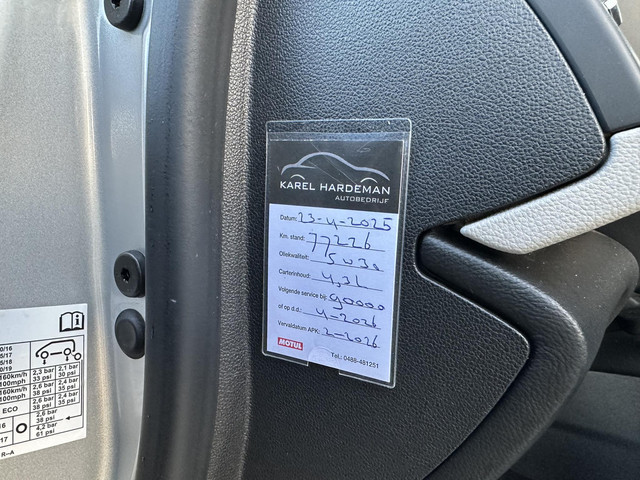 KAREL HARDEMAN
AUTOBEDRIJF
Datum: 23-4-2025
Km. stand: 77226
Oliekwaliteit: 5w30
Carterinhoud: 4,3L
Volgende service bij: 90000
of op d.d.: 4-2026
Vervaldatum APK: 2-2026
MOTUL
Tel.: 0488-481251
160km/h
100mph
2,3 bar
33 psi
2,1 bar
30 psi
160km/h
100mph
2,6 bar
38 psi
2,4 bar
35 psi
ECO
2,6 bar
38 psi
2,4 bar
35 psi
2,6 bar
38 psi
4,2 bar
61 psi
R-A